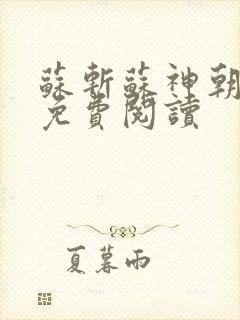 蘇斬蘇神朝
免費閱讀
夏暮雨